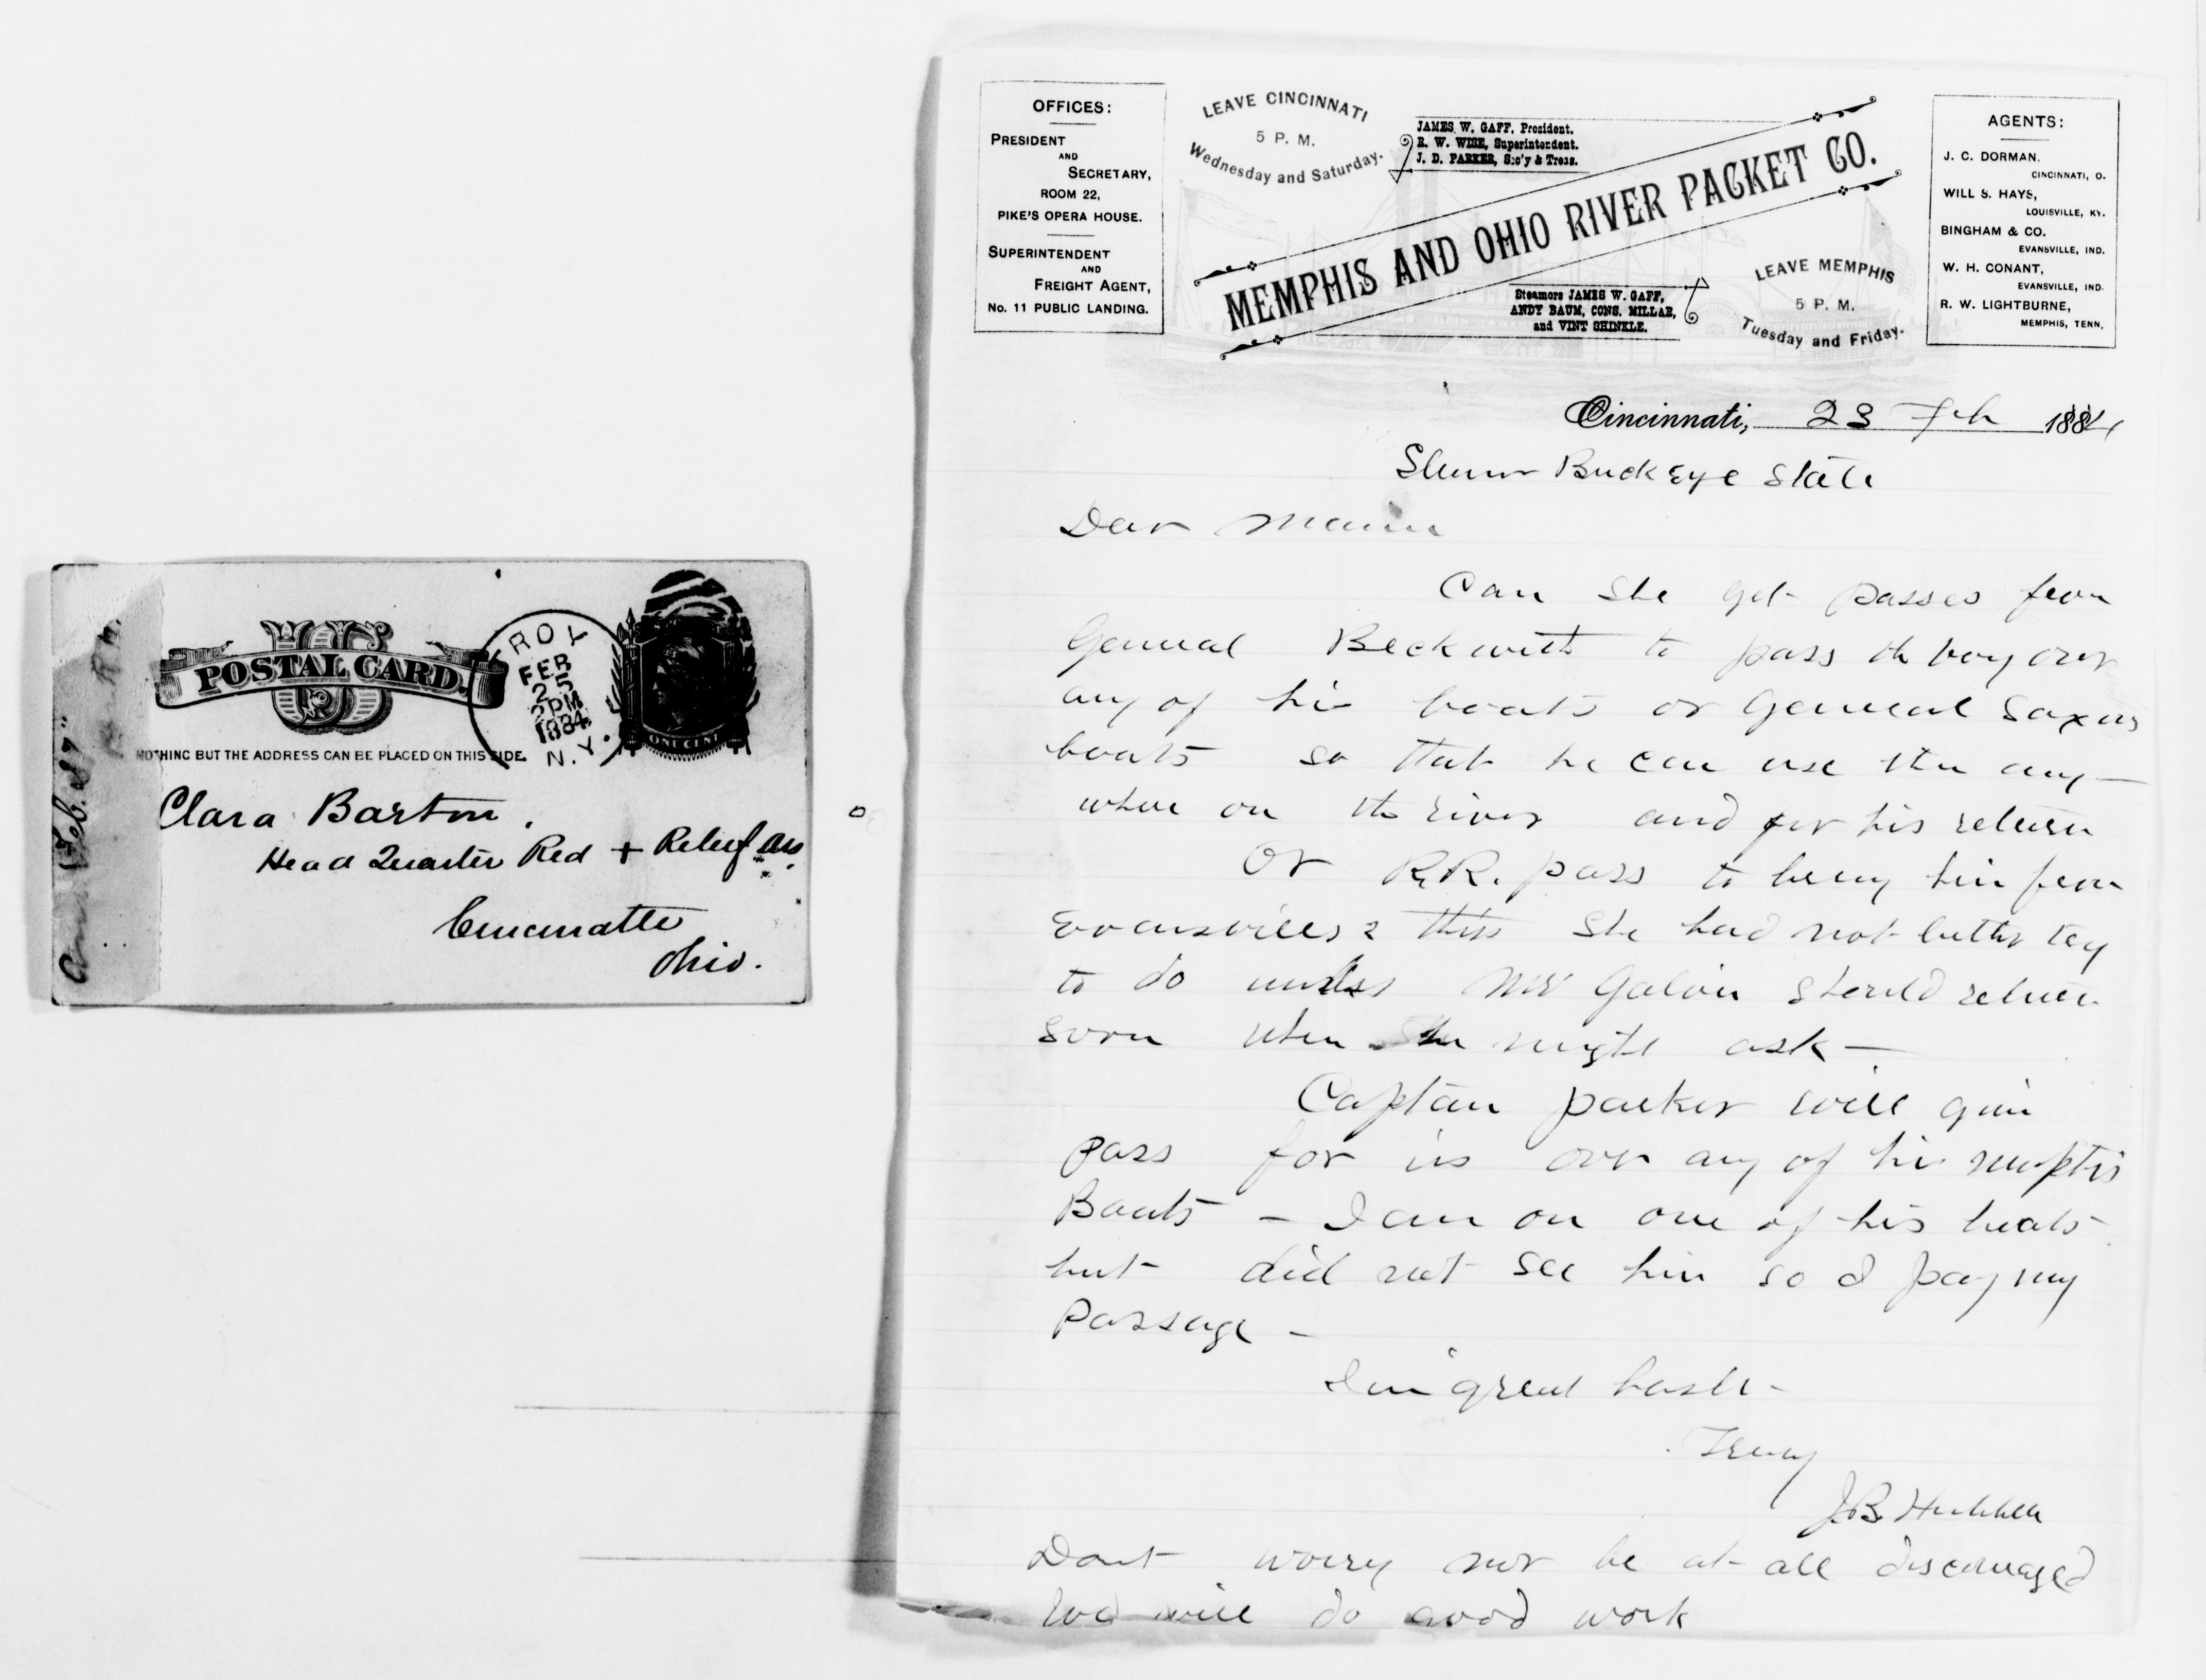 Ansd Feb. 27"
POSTAL CARD.
US
NOTHING BUT THE ADDRESS CAN BE PLACED ON THIS SIDE.
ROY
FEB
25
2PM
1884
N.Y.
ONE CENT
Clara Barton.
Head Quarter Red + Relief Ass.
Cincinatti
Ohio.
OFFICES:
PRESIDENT
AND
SECRETARY,
ROOM 22,
PIKE'S OPERA HOUSE.
SUPERINTENDENT
AND
FREIGHT AGENT,
No. 11 PUBLIC LANDING.
LEAVE CINCINNATI
5 P. M.
Wednesday and Saturday.
JAMES W. GAFF, President.
R. W. WISE, Superintendent.
J. D. PARKER, Sec'y & Treas.
MEMPHIS AND OHIO RIVER PACKET CO.
Steamers JAMES W. GAFF,
ANDY BAUM, CONS. MILLAR,
and VINT SHINKLE.
LEAVE MEMPHIS
5 P. M.
Tuesday and Friday.
AGENTS:
J. C. DORMAN.
CINCINNATI, O.
WILL S. HAYS,
LOUISVILLE, KY.
BINGHAM & CO.
EVANSVILLE, IND.
W. H. CONANT,
EVANSVILLE, IND.
R. W. LIGHTBURNE,
MEMPHIS, TENN.
Cincinnati, 23 Feb 1884
Steamer Buckeye State
Dear
Can she get passes from
General Beckwith to pass th boy over
any of his boats or General Saxtons
boats so that he can use them any-
where on the river and for his return
Or R.R. pass to bring him from
Evansville? this she had not better try
to do unless Mr Galvin should return
soon when she might ask —
Captain Parker will give
pass for us over any of his Memphis
Boats - I am on one of his boats
but did not see him so I pay my
Passage -
In great haste -
Truly
J.B. Hubbell
Dont worry nor be at all discouraged
We will do good work